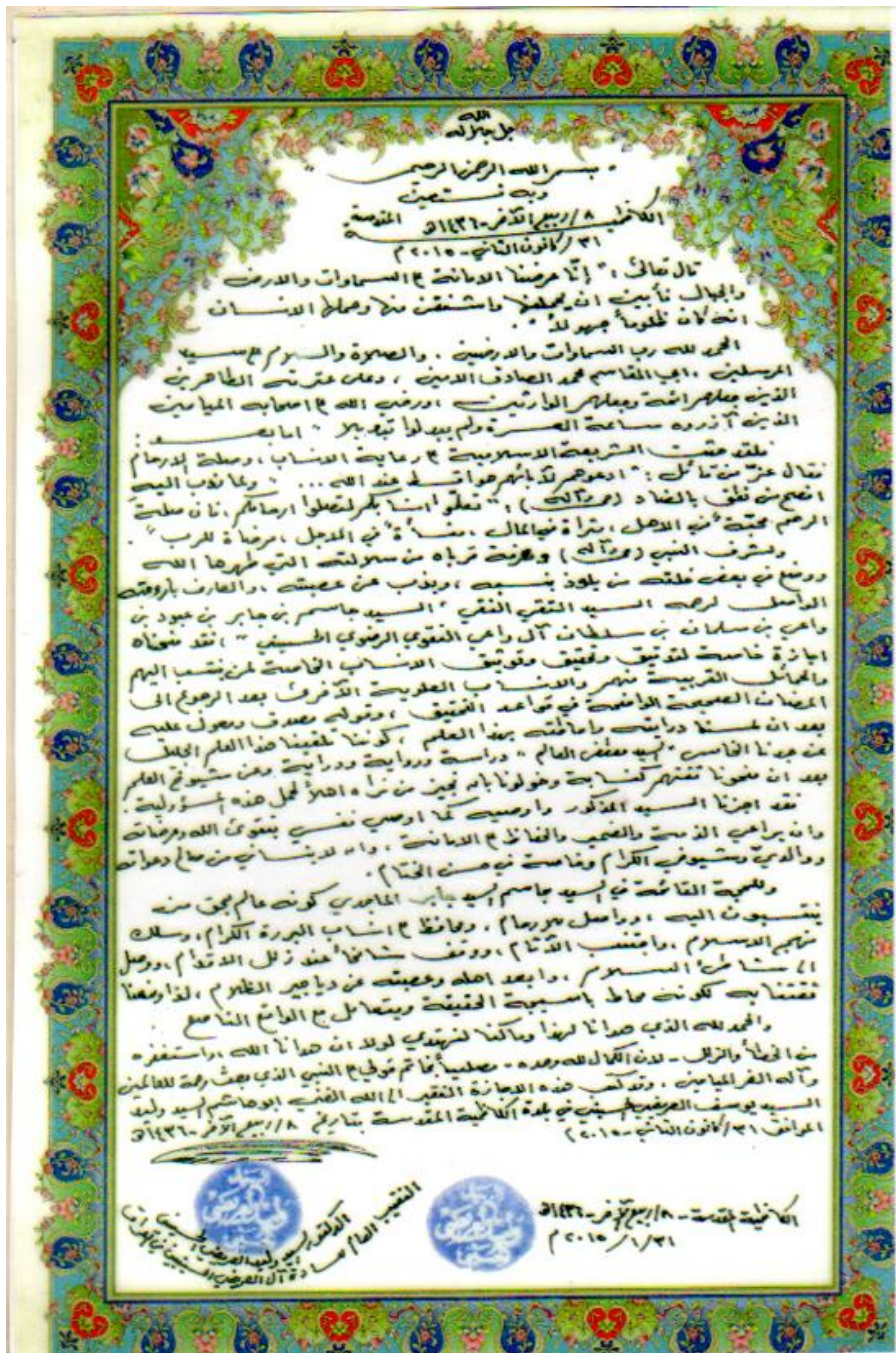 الله
جل جلاله
" بسم الله الرحمن الرحيم "
وبه نستعين
الكاظمية ٨/ربيع الآخر-١٤٣٦هـ المقدسة
٣١/كانون الثاني-٢٠١٥م
قال تعالى: " إنّا عرضنا الامانة ع السماوات والارض
والجبال فأبين ان يحملنها واشفقن منها وحملها الانسان
انه كان ظلوماً جهولاً "
الحمد لله رب السماوات والارضين . والصلاة والسلام ع سيد
المرسلين ، ابي القاسم محمد الصادق الامين ، وعلى عترته الطاهرين
الذين جعلهم ائمة وجعلهم الوارثين ، ورضي الله ع اصحابه الميامين
الذين آزروه ساعة العسرة ولم يبدلوا تبديلا " اما بعد :
فلقد حثت الشريعة الاسلامية ع رعاية الانساب ، وصلة الارحام
فقال عزّ من قائل : " ادعوهم لآبائهم هو اقسط عند الله ... " ولما ندب اليه
افصح من نطق بالضاد (ص وآله) : " تعلّموا انسابكم لتصلوا ارحامكم ، فان صلة
الرحم محبّة في الاهل ، مثراة في المال ، منسأة في الاجل ، مرضاة للرب " .
ولشرف النبي (ص وآله) ومعرفة قرباه من سلالته التي طهرها الله
ووضع في بعض خلقه من يلوذ بنسبه ، ويذب عن عصبته ، والعارف بأرومته
الواصل لرحمه السيد التقي النقي " السيد جاسم بن جابر بن عبود بن
واعي بن سلمان بن سلطان آل واعي النقوي الرضوي الحسيني " ، فقد منحناه
اجازة خاصة لتدقيق وتحقيق وتوثيق الانساب الخاصة لمن ينتسب اليهم
والحمائل القريبة منهم والانساب العلوية الآخرى بعد الرجوع الى
المضان الصحيحة الواضحة في قواعد التحقيق ، وقوله مصدق ومعول عليه
بعد ان لمسنا درايته واحاطته بهذا العلم ، كوننا تلقينا هذا العلم الجليل
عن جدنا الخامس " السيد العالم " دراسة ورواية ودراية وعن شيوخ العلم
بعد ان منحونا ثقتهم كتابة وخولونا بان نجيز من نراه اهلاً لحمل هذه المسؤولية
فقد اجزنا السيد المذكور واوصيه كما اوصي نفسي بتقوى الله ومرضاته
وان يراعي الذمة والضمير والحفاظ ع الامانة ، وان لا ينساني من صالح دعواته
ووالديّ وشيوخي الكرام وخاصة في حسن الختام .
وللسجية القائمة في السيد جاسم السيد جابر الماجدي كونه عالم بحق من
ينتسبون اليه ، وواصل للارحام ، ومحافظ ع انساب البررة الكرام ، وسلك
منهج الاسلام ، واجتنب الآثام ، ووقف شامخاً عند زلل الاقدام ، ووصل
الى شاطئ السلام ، وابعد اهله وعصبته عن دياجير الظلام ، لذا وضعنا
ثقتنا به لكونه محاط باسيجة الحقيقة ويتعامل مع الواقع الناصع
والحمد لله الذي هدانا لهذا وما كنا لنهتدي لولا ان هدانا الله ، واستغفره
من الخطأ والزلل - لان الكمال لله وحده - مصلياً بخاتم قولي ع النبي الذي بعث رحمة للعالمين
وآله الغر الميامين . وقد كتب هذه الاجازة الفقير الى الله الغني ابو هاشم السيد وليد
السيد يوسف العريضي الحسيني في بلدة الكاظمية المقدسة بتاريخ ٨/ربيع الآخر-١٤٣٦هـ
الموافق ٣١/كانون الثاني-٢٠١٥م
الكاظمية المقدسة-٨/ربيع الآخر-١٤٣٦هـ
٣١/١/٢٠١٥م
الدكتور السيد وليد العريضي الحسيني
النقيب العام لسادة آل العريضي الحسينيين في العراق